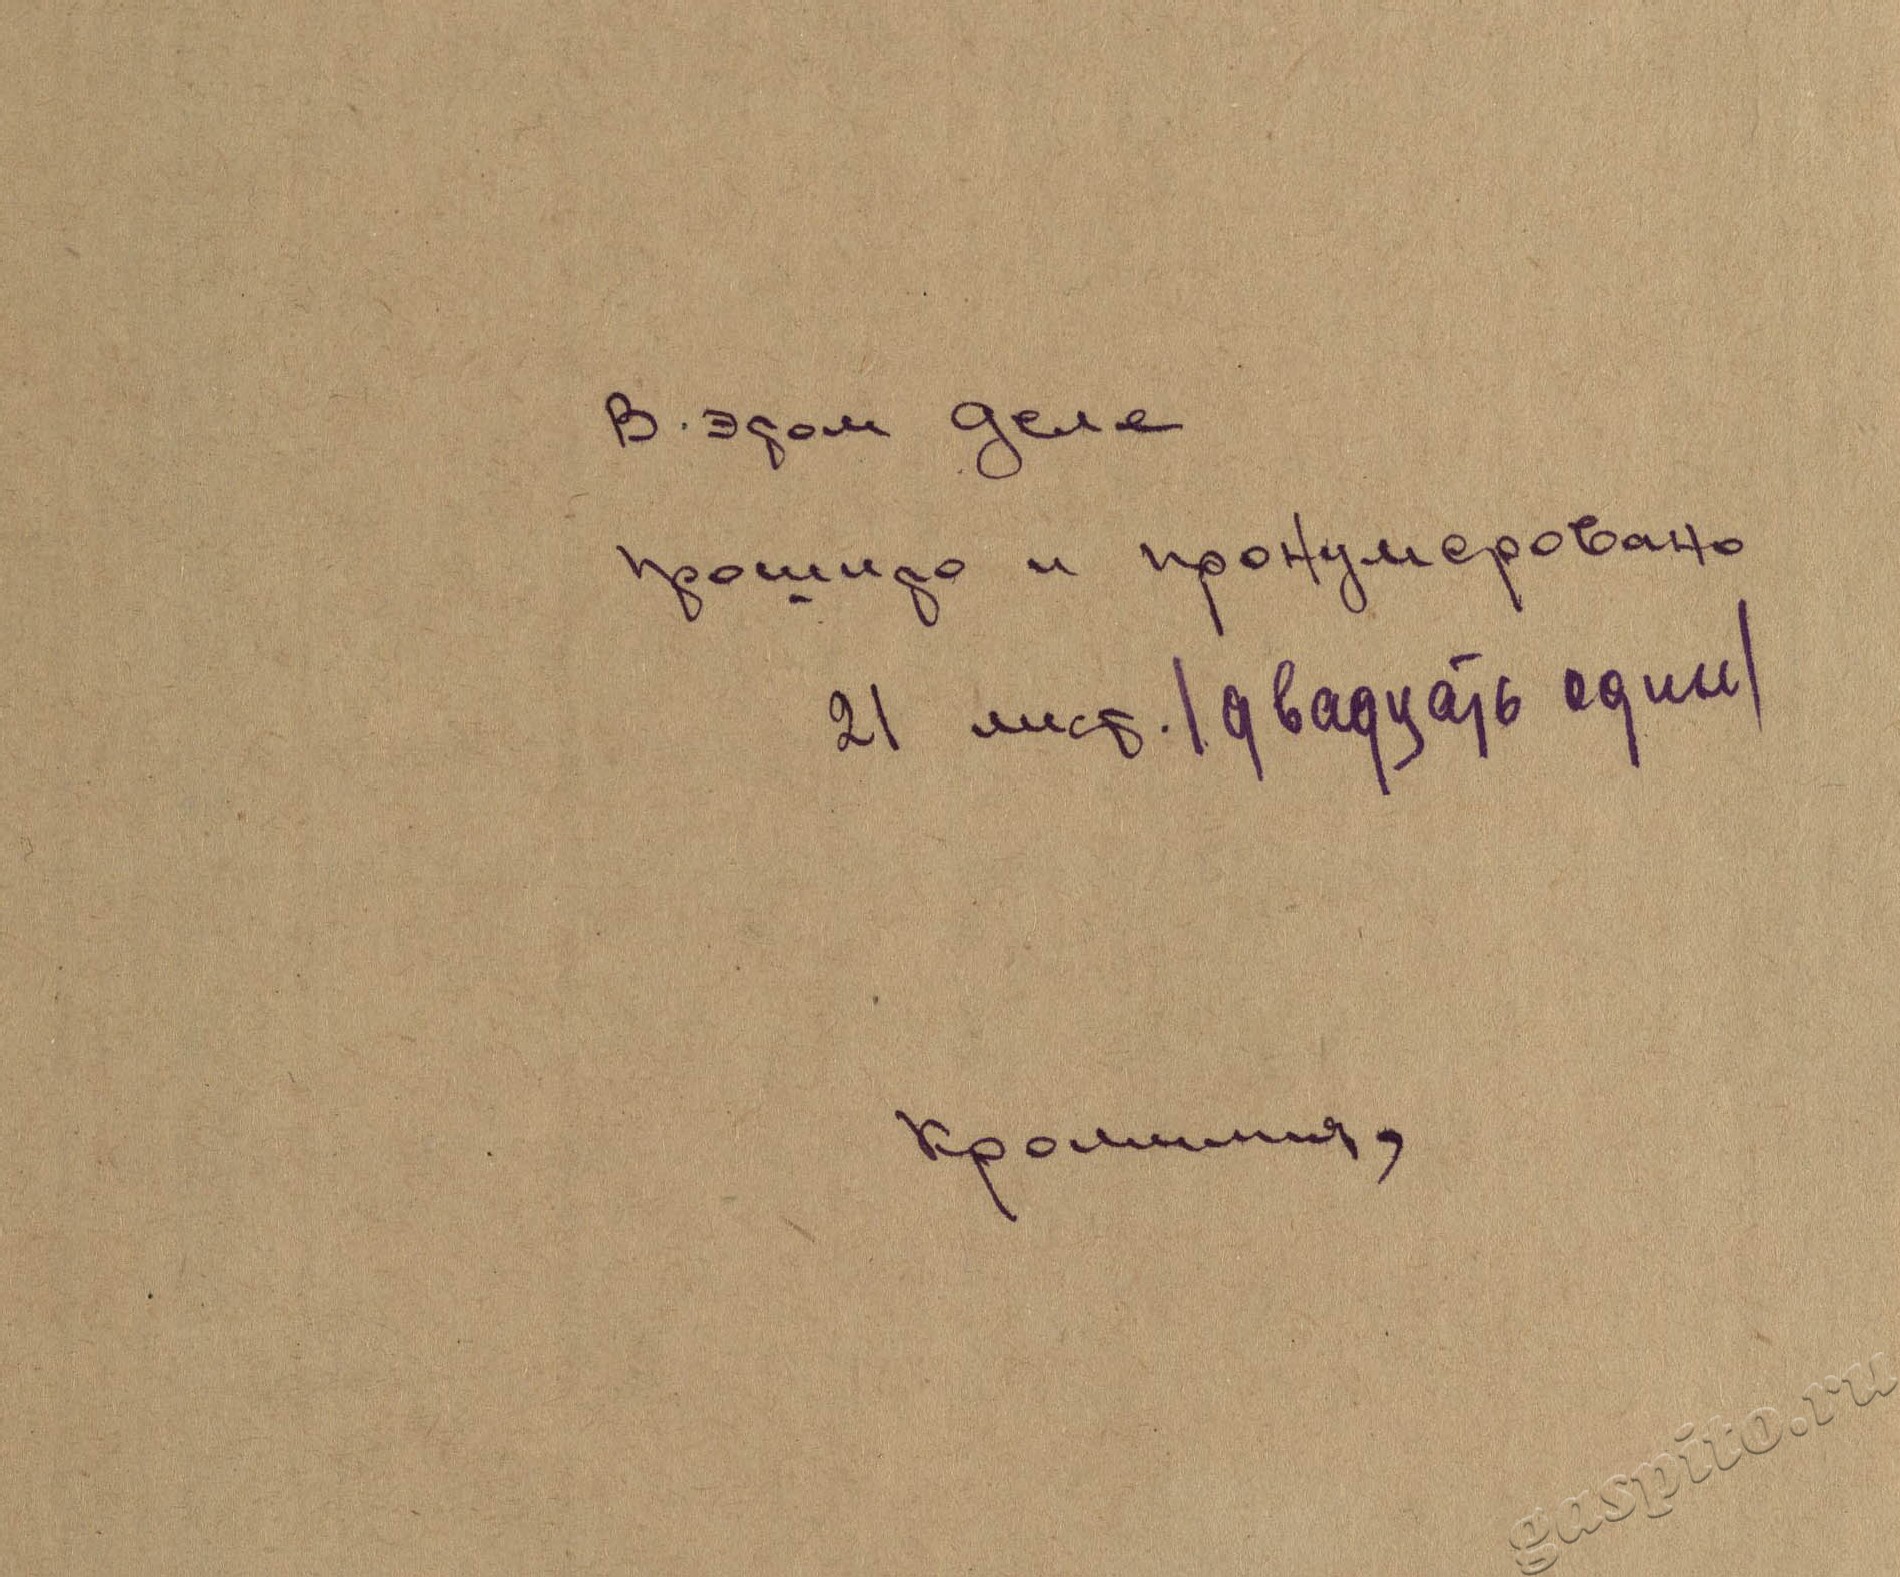 В этом деле
прошито и пронумеровано
21 лист. /двадцать один/
gaspito.ru